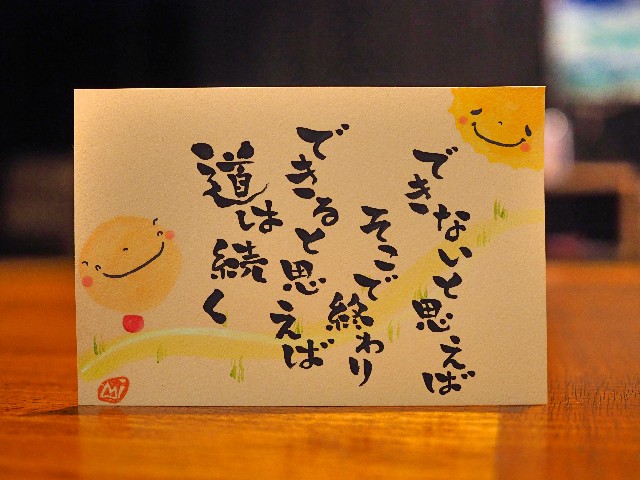 できないと思えば
そこで終わり
できると思えば
道は続く